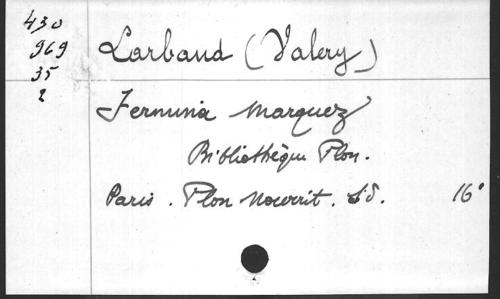 430
969
35
2
Larbaud (Valery)
Fermina Marquez
Bibliothèque Plon.
Paris. Plon Nourrit. s.d. 16°